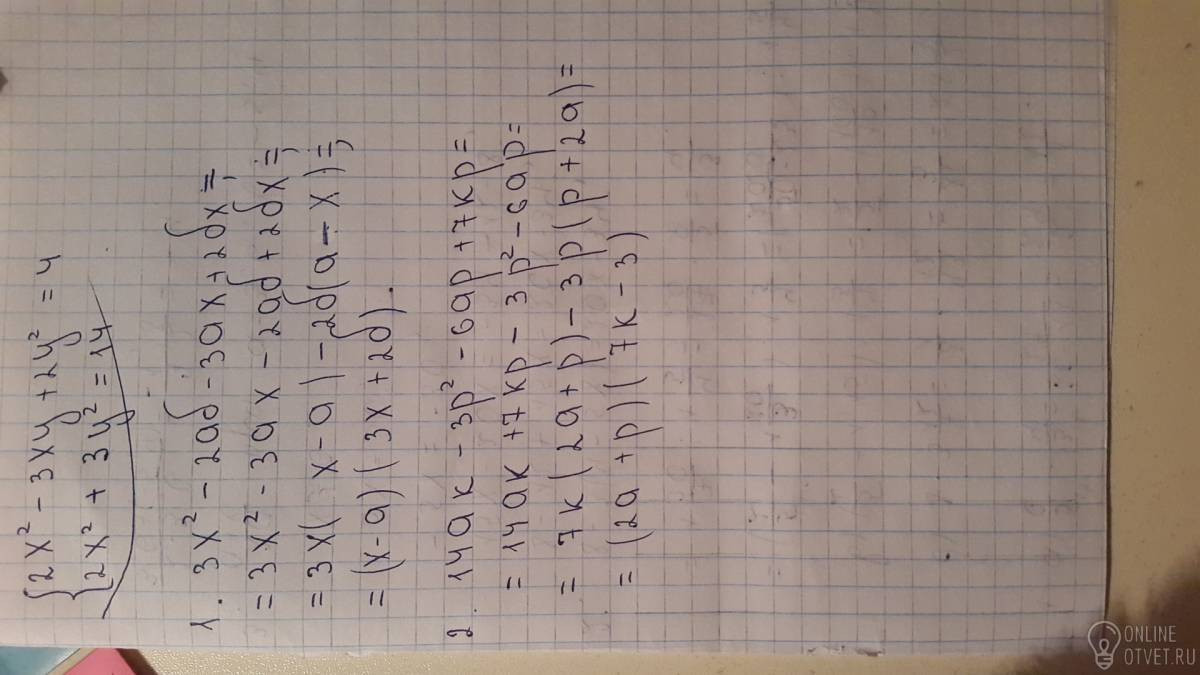 {2x² - 3xy + 2y² = 4
{2x² + 3y² = 14
1. 3x² - 2aб - 3ax + 2бx =
= 3x² - 3ax - 2aб + 2бx =
= 3x( x - a ) - 2б(a - x) =
= (x-a) ( 3x + 2б).
2. 14ak - 3p² - 6ap + 7kp =
= 14ak + 7kp - 3p² - 6ap =
= 7k ( 2a + p) - 3p (p + 2a) =
= (2a + p) ( 7k - 3)
ONLINE
OTVET.RU